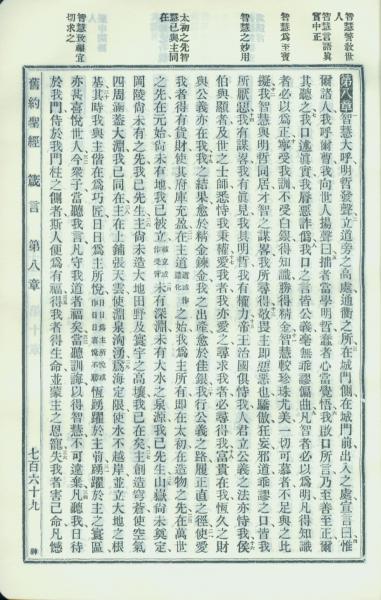 智慧警教世人
智慧言語眞實中正
智慧爲至寶
智慧之妙用
太初之先智慧已與主同在
智慧致福宜切求之
第八章 智慧大呼明哲發聲立道旁之高處通衢之所在城門側在城門前出入之處宣言曰惟
爾諸人我呼爾曹我向世人揚聲曰拙者當學明哲蠢者心當覺悟我啟口所言乃至善至正爾
其聽之我口述眞實我脣惡詭譎我口之言皆公義毫無乖謬偏曲凡智者必以爲明凡得知識
者必以爲正寧受我訓不受白銀得知識勝得精金智慧較珍珠尤美一切可慕者不足與之比
擬我智慧與明哲同居才智之謀畧我所尋得敬畏主卽惡惡也驕傲狂妄邪道乖謬之口皆我
所厭惡我有謀畧我有眞見我具明哲我有權力帝王治國俱恃我人君立公義之法亦恃我侯
伯與顯者及世之士師悉恃我秉權愛我者我亦愛之尋求我者必尋得我富貴在我恆久之財
與公義亦在我我之結果愈於精金鍊金我之出產愈於佳銀我行公義之路履正直之徑使愛
我者得有貨財使其府庫充盈在主造化之始我爲主所有卽在太初在造物之先在萬世
之先在元始尙未有地我已被立未有深淵未有大水之泉源我已先生山嶽尙未奠定
岡陵尙未有之先我已先生主尙未造大地田野及寰宇之高壤我已在矣主創造穹蒼使空氣
四周涵蓋大淵我已同在主在上鋪張天雲使淵泉湧爲海定限使水不越岸並立大地之根
基其時我與主偕在爲巧匠日日爲主所悅恆踴躍於主前踴躍於主之寰區
亦甚喜悅世人今衆子當聽我言凡守我道者福矣當聽訓誨以得智慧不可違棄凡聽我日待
於我門侍於我門柱之側者斯人便爲有福得我者得生命並蒙主之恩寵失我者害己命凡憾
舊約聖經 箴言 第八章 七百六十九